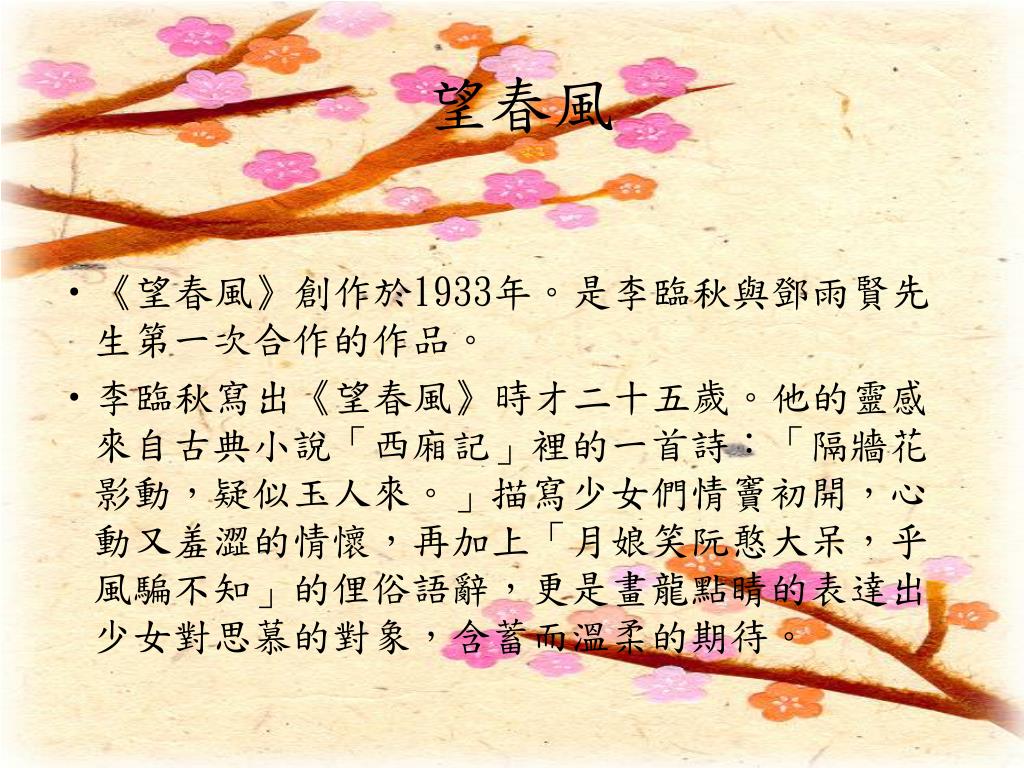 望春風
•《望春風》創作於1933年。是李臨秋與鄧雨賢先
生第一次合作的作品。
•李臨秋寫出《望春風》時才二十五歲。他的靈感
來自古典小說「西廂記」裡的一首詩：「隔牆花
影動，疑似玉人來。」描寫少女們情竇初開，心
動又羞澀的情懷，再加上「月娘笑阮憨大呆，乎
風騙不知」的俚俗語辭，更是畫龍點睛的表達出
少女對思慕的對象，含蓄而溫柔的期待。